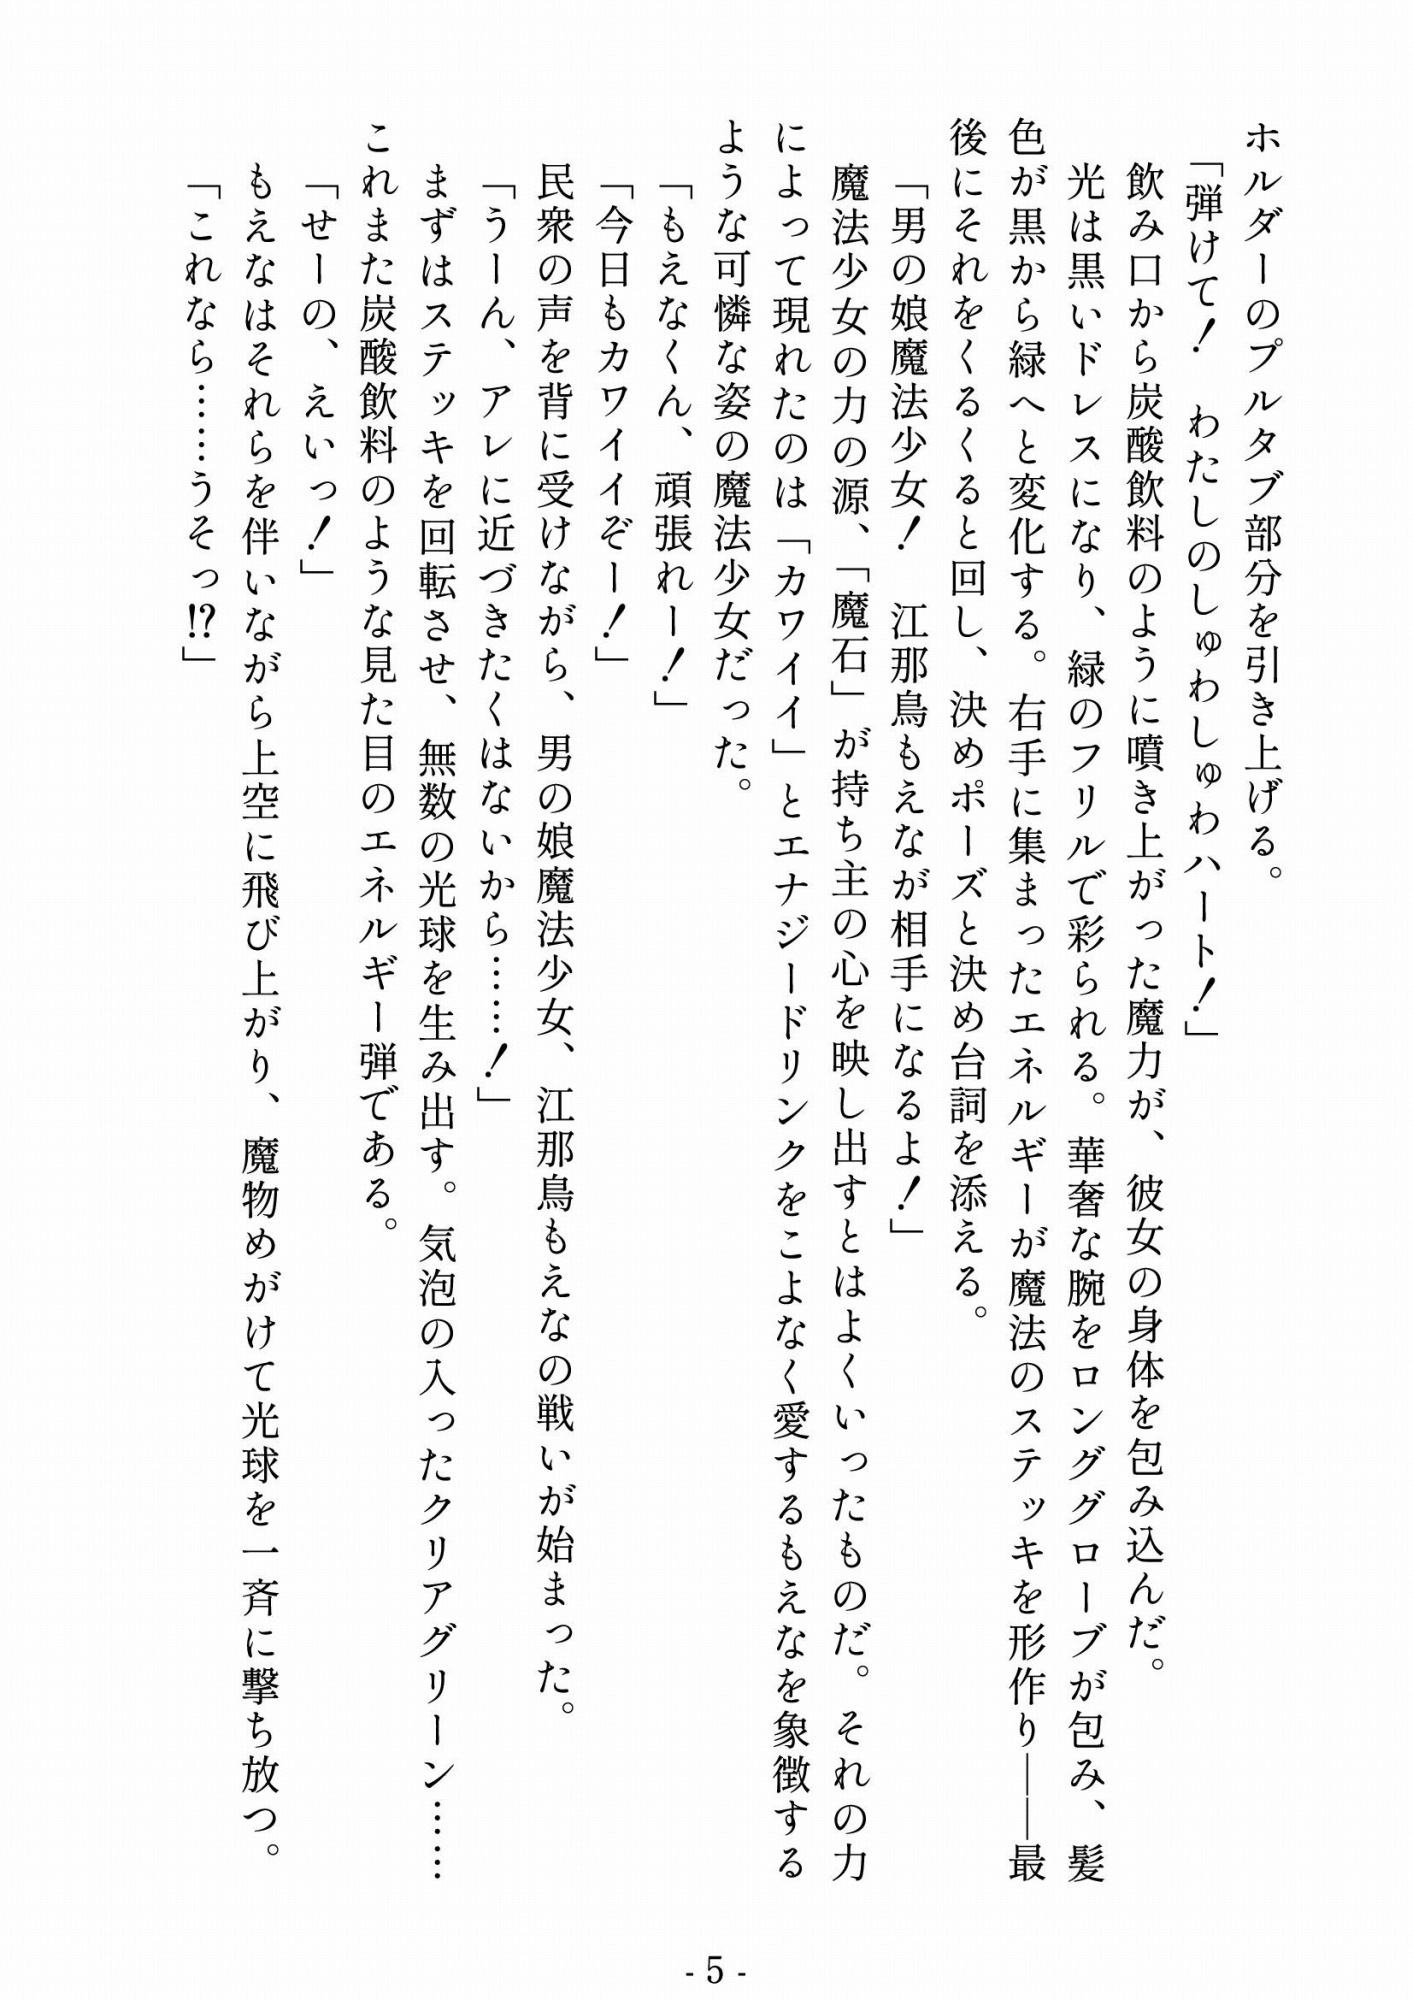 ホルダーのプルタブ部分を引き上げる。
「弾けて！　わたしのしゅわしゅわハート！」
飲み口から炭酸飲料のように噴き上がった魔力が、彼女の身体を包み込んだ。
光は黒いドレスになり、緑のフリルで彩られる。華奢な腕をロンググローブが包み、髪
色が黒から緑へと変化する。右手に集まったエネルギーが魔法のステッキを形作り――最
後にそれをくるくると回し、決めポーズと決め台詞を添える。
「男の娘魔法少女！　江那鳥もえなが相手になるよ！」
魔法少女の力の源、「魔石」が持ち主の心を映し出すとはよくいったものだ。それの力
によって現れたのは「カワイイ」とエナジードリンクをこよなく愛するもえなを象徴する
ような可憐な姿の魔法少女だった。
「もえなくん、頑張れー！」
「今日もカワイイぞー！」
民衆の声を背に受けながら、男の娘魔法少女、江那鳥もえなの戦いが始まった。
「うーん、アレに近づきたくはないから……！」
まずはステッキを回転させ、無数の光球を生み出す。気泡の入ったクリアグリーン……
これまた炭酸飲料のような見た目のエネルギー弾である。
「せーの、えいっ！」
もえなはそれらを伴いながら上空に飛び上がり、魔物めがけて光球を一斉に撃ち放つ。
「これなら……うそっ!?」
- 5 -